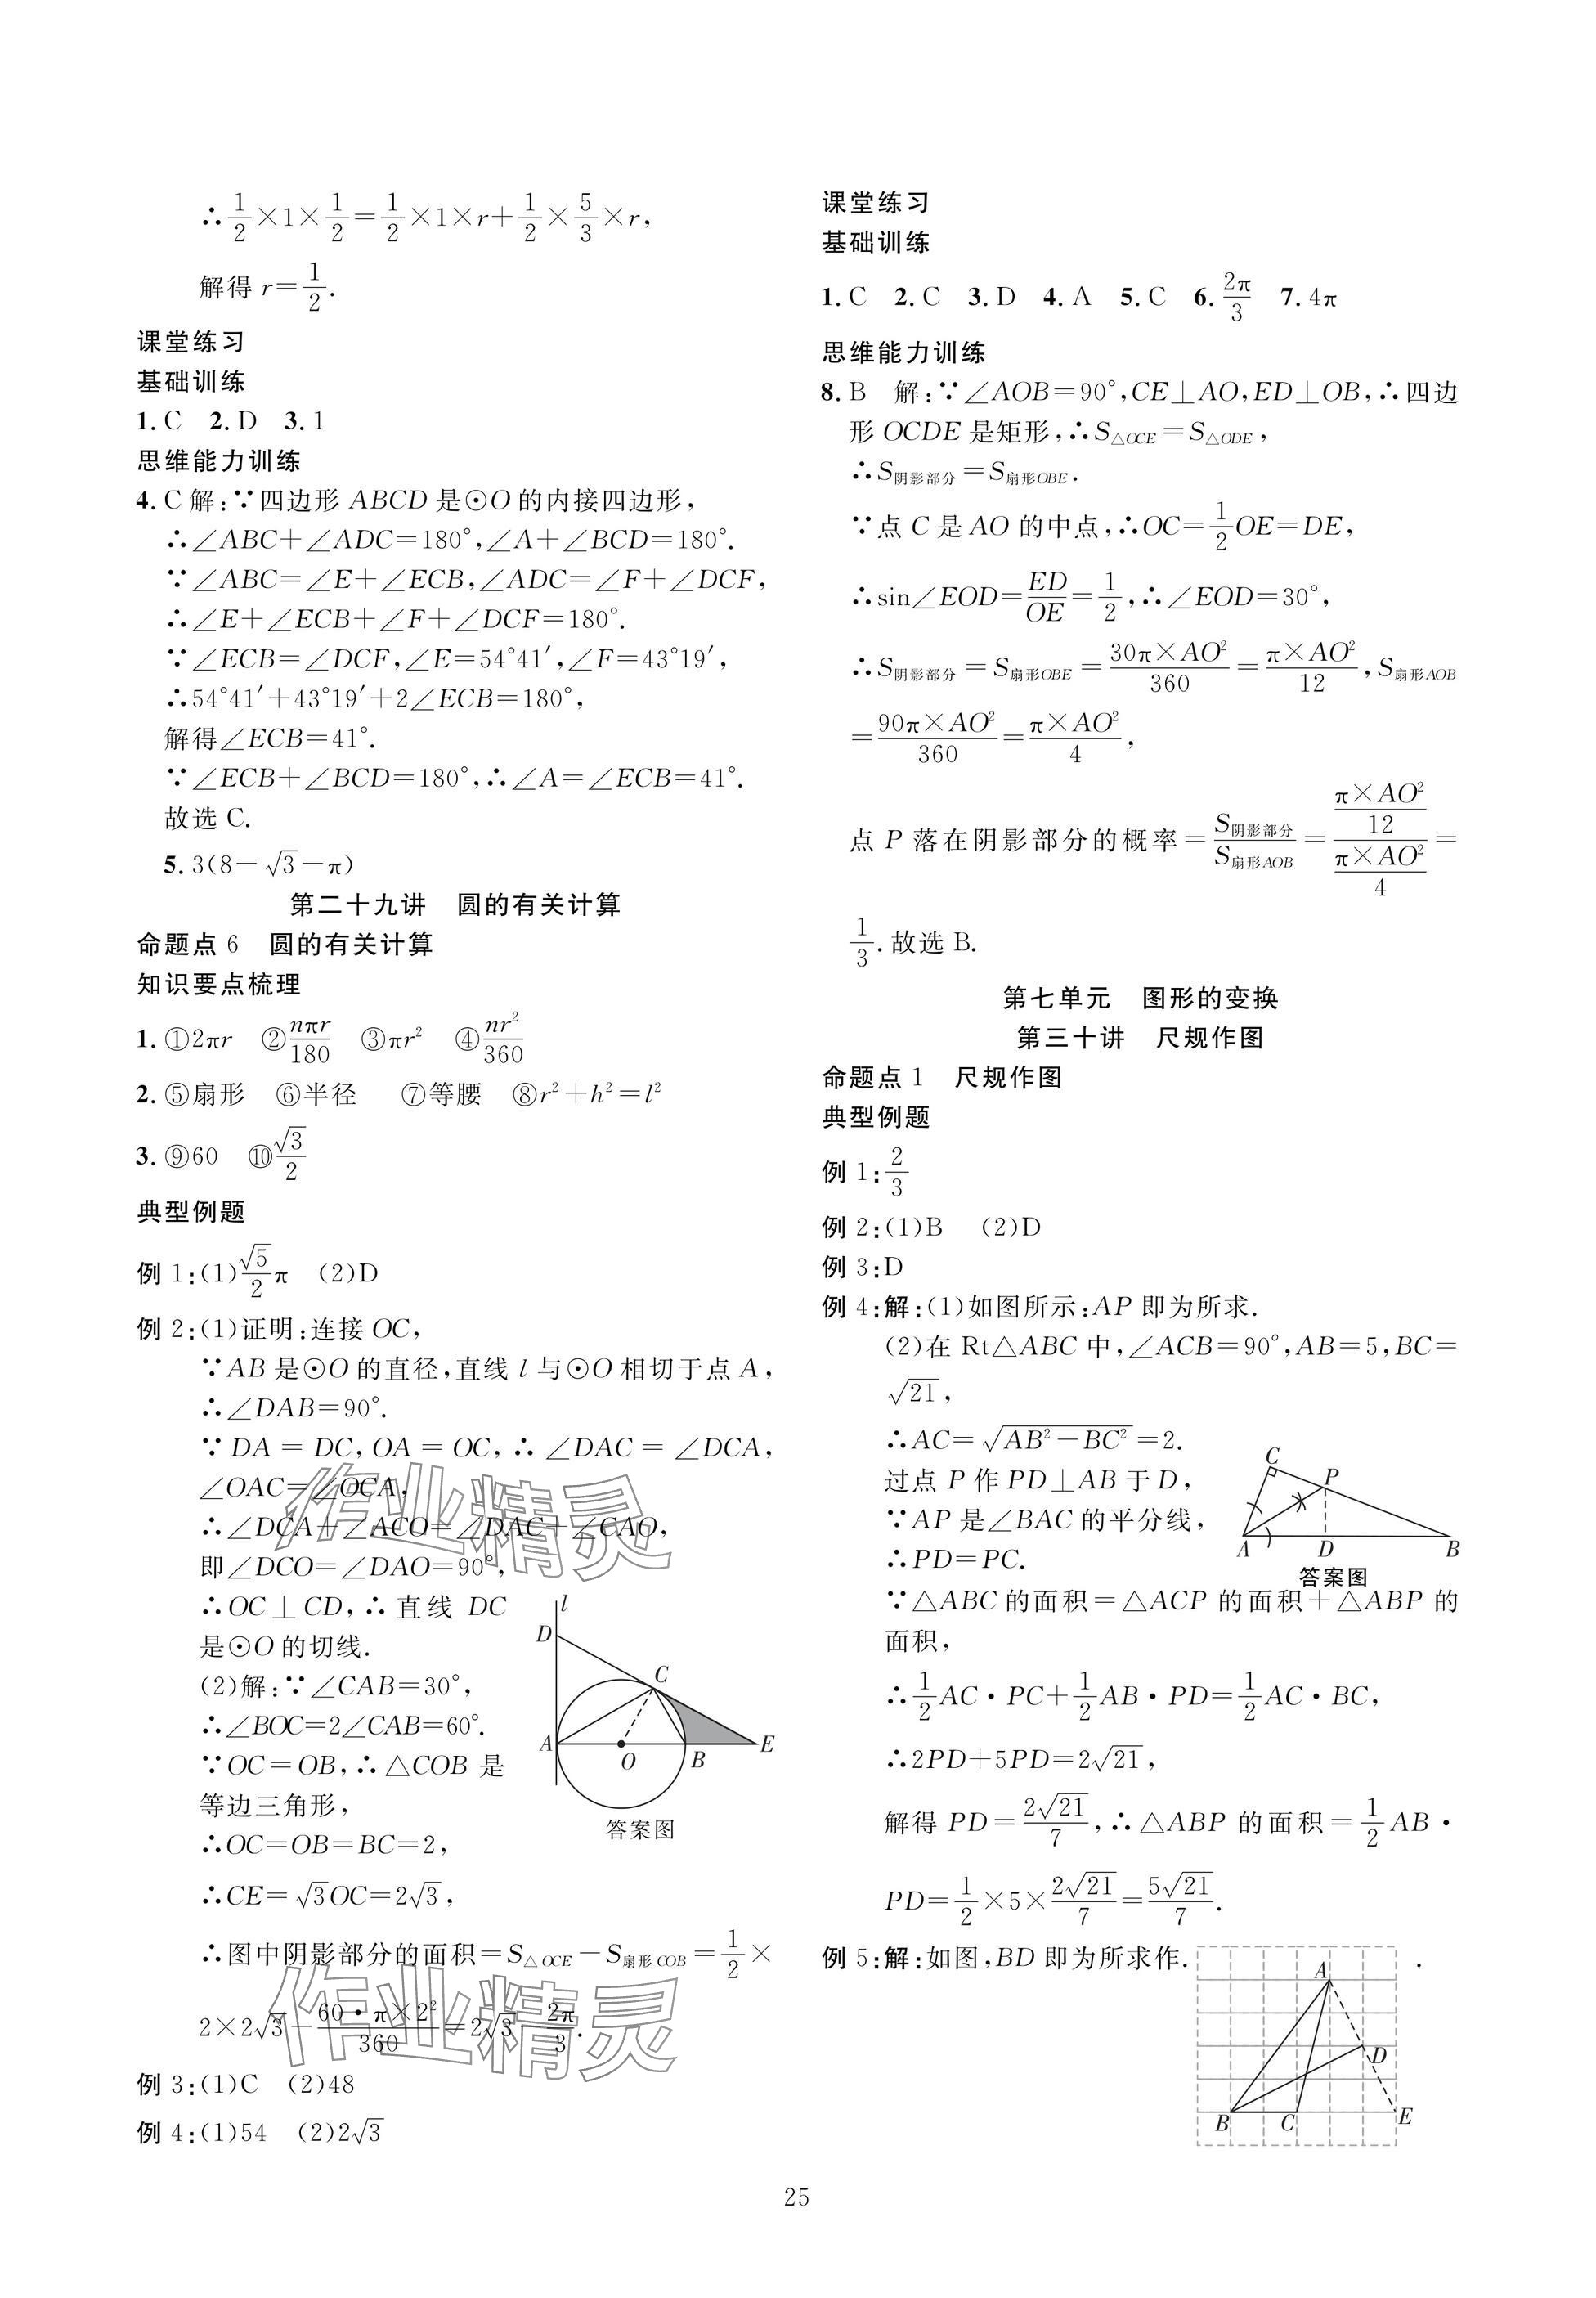 ∴1/2×1×1/2=1/2×1×r+1/2×5/3×r,
解得 r=1/2.
课堂练习
基础训练
1. C 2. D 3. 1
思维能力训练
4. C 解:∵四边形 ABCD 是⊙O 的内接四边形,
∴∠ABC+∠ADC=180°,∠A+∠BCD=180°.
∵∠ABC=∠E+∠ECB,∠ADC=∠F+∠DCF,
∴∠E+∠ECB+∠F+∠DCF=180°.
∵∠ECB=∠DCF,∠E=54°41′,∠F=43°19′,
∴54°41′+43°19′+2∠ECB=180°,
解得∠ECB=41°.
∵∠ECB+∠BCD=180°,∴∠A=∠ECB=41°.
故选 C.
5. 3(8-√3-π)
第二十九讲 圆的有关计算
命题点 6 圆的有关计算
知识要点梳理
1. ①2πr ②nπr/180 ③πr² ④nr²/360
2. ⑤扇形 ⑥半径 ⑦等腰 ⑧r²+h²=l²
3. ⑨60 ⑩√3/2
典型例题
例 1:(1)√5/2π (2)D
例 2:(1)证明:连接 OC,
∵AB 是⊙O 的直径,直线 l 与⊙O 相切于点 A,
∴∠DAB=90°.
∵DA=DC,OA=OC,∴∠DAC=∠DCA,
∠OAC=∠OCA,
∴∠DCA+∠ACO=∠DAC+∠CAO,
即∠DCO=∠DAO=90°,
∴OC⊥CD,∴直线 DC
是⊙O 的切线.
(2)解:∵∠CAB=30°,
∴∠BOC=2∠CAB=60°.
∵OC=OB,∴△COB 是
等边三角形,
∴OC=OB=BC=2,
∴CE=√3OC=2√3,
l
D
C
A
O
B
E
答案图
∴图中阴影部分的面积=S△OCE-S扇形COB=1/2×
2×2√3-60·π×2²/360=2√3-2π/3.
例 3:(1)C (2)48
例 4:(1)54 (2)2√3
作业精灵
作业精灵
课堂练习
基础训练
1. C 2. C 3. D 4. A 5. C 6. 2π/3 7. 4π
思维能力训练
8. B 解:∵∠AOB=90°,CE⊥AO,ED⊥OB,∴四边
形 OCDE 是矩形,∴S△OCE=S△ODE,
∴S阴影部分=S扇形OBE.
∵点 C 是 AO 的中点,∴OC=1/2OE=DE,
∴sin∠EOD=ED/OE=1/2,∴∠EOD=30°,
∴S阴影部分=S扇形OBE=30π×AO²/360=π×AO²/12,S扇形AOB
=90π×AO²/360=π×AO²/4,
点 P 落在阴影部分的概率=S阴影部分/S扇形AOB=(π×AO²/12)/(π×AO²/4)=
1/3.故选 B.
第七单元 图形的变换
第三十讲 尺规作图
命题点 1 尺规作图
典型例题
例 1:2/3
例 2:(1)B (2)D
例 3:D
例 4:解:(1)如图所示:AP 即为所求.
(2)在 Rt△ABC 中,∠ACB=90°,AB=5,BC=
√21,
∴AC=√(AB²-BC²)=2.
过点 P 作 PD⊥AB 于 D,
∵AP 是∠BAC 的平分线,
∴PD=PC.
C
P
A
D
B
答案图
∵△ABC 的面积=△ACP 的面积+△ABP 的
面积,
∴1/2AC·PC+1/2AB·PD=1/2AC·BC,
∴2PD+5PD=2√21,
解得 PD=2√21/7,∴△ABP 的面积=1/2AB·
PD=1/2×5×2√21/7=5√21/7.
例 5:解:如图,BD 即为所求作. .
A
D
B
C
E
25